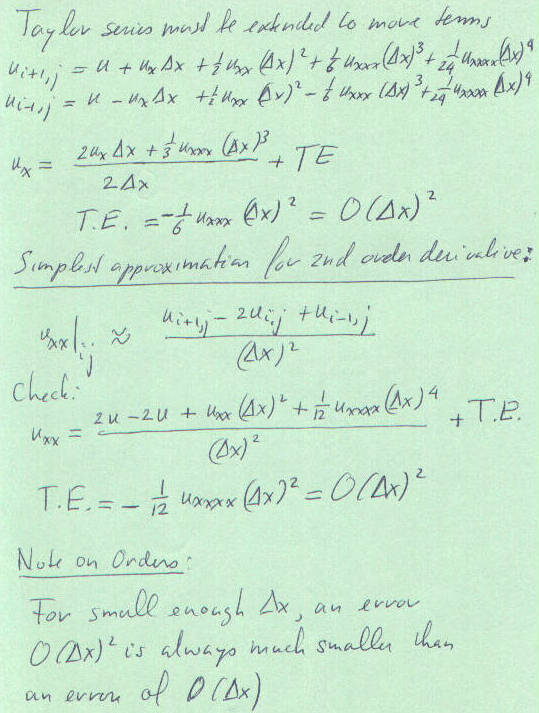 Taylor series must be extended to more terms
u_{i+1,j} = u + u_x Δx + ½ u_xx (Δx)² + 1/6 u_xxx (Δx)³ + 1/24 u_xxxx (Δx)⁴
u_{i-1,j} = u - u_x Δx + ½ u_xx (Δx)² - 1/6 u_xxx (Δx)³ + 1/24 u_xxxx (Δx)⁴
u_x = (2u_x Δx + 1/3 u_xxx (Δx)³) / (2Δx) + TE
T.E. = -1/6 u_xxx (Δx)² = O(Δx)²
Simplest approximation for 2nd order derivative:
u_xx|_{ij} ≈ (u_{i+1,j} - 2u_{i,j} + u_{i-1,j}) / (Δx)²
Check:
u_xx = (2u - 2u + u_xx (Δx)² + 1/12 u_xxxx (Δx)⁴) / (Δx)² + T.E.
T.E. = - 1/12 u_xxxx (Δx)² = O(Δx)²
Note on Orders:
For small enough Δx, an error
O(Δx)² is always much smaller than
an error of O(Δx)